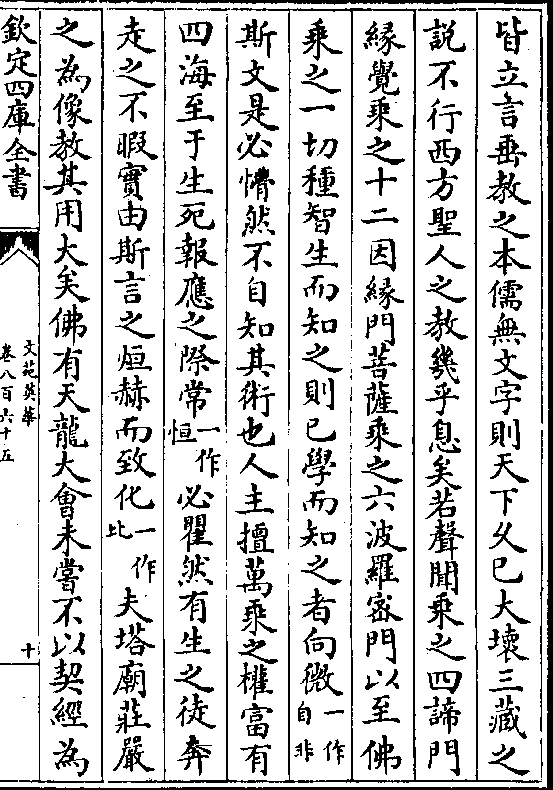 皆立言垂教之本儒無文字則天下久已大壞三藏之
説不行西方聖人之教幾乎息矣若聲聞乘之四諦門
縁覺乘之十二因縁門菩薩乘之六波羅宻門以至佛
乘之一切種智生而知之則已學而知之者向微一作自非
斯文是必懵然不自知其術也人主擅萬乘之權富有
四海至于生死報應之際常一作恒必瞿然有生之徒奔
走之不暇實由斯言之烜赫而致化一作比夫塔廟莊嚴
之為像教其用大矣佛有天龍大會未嘗不以契經為
欽定四庫全書
文苑英華
卷八百六十五
十